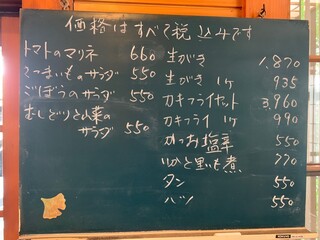 価格はすべて税込みです
トマトのマリネ 660
さつまいものサラダ 550
ごぼうのサラダ 550
むしどりと山菜の
サラダ 550
生がき 1,870
生がき 1ヶ 935
カキフライセット 3,960
カキフライ 1ヶ 990
かつお塩辛 550
いかと里いも煮 770
タン 550
ハツ 550